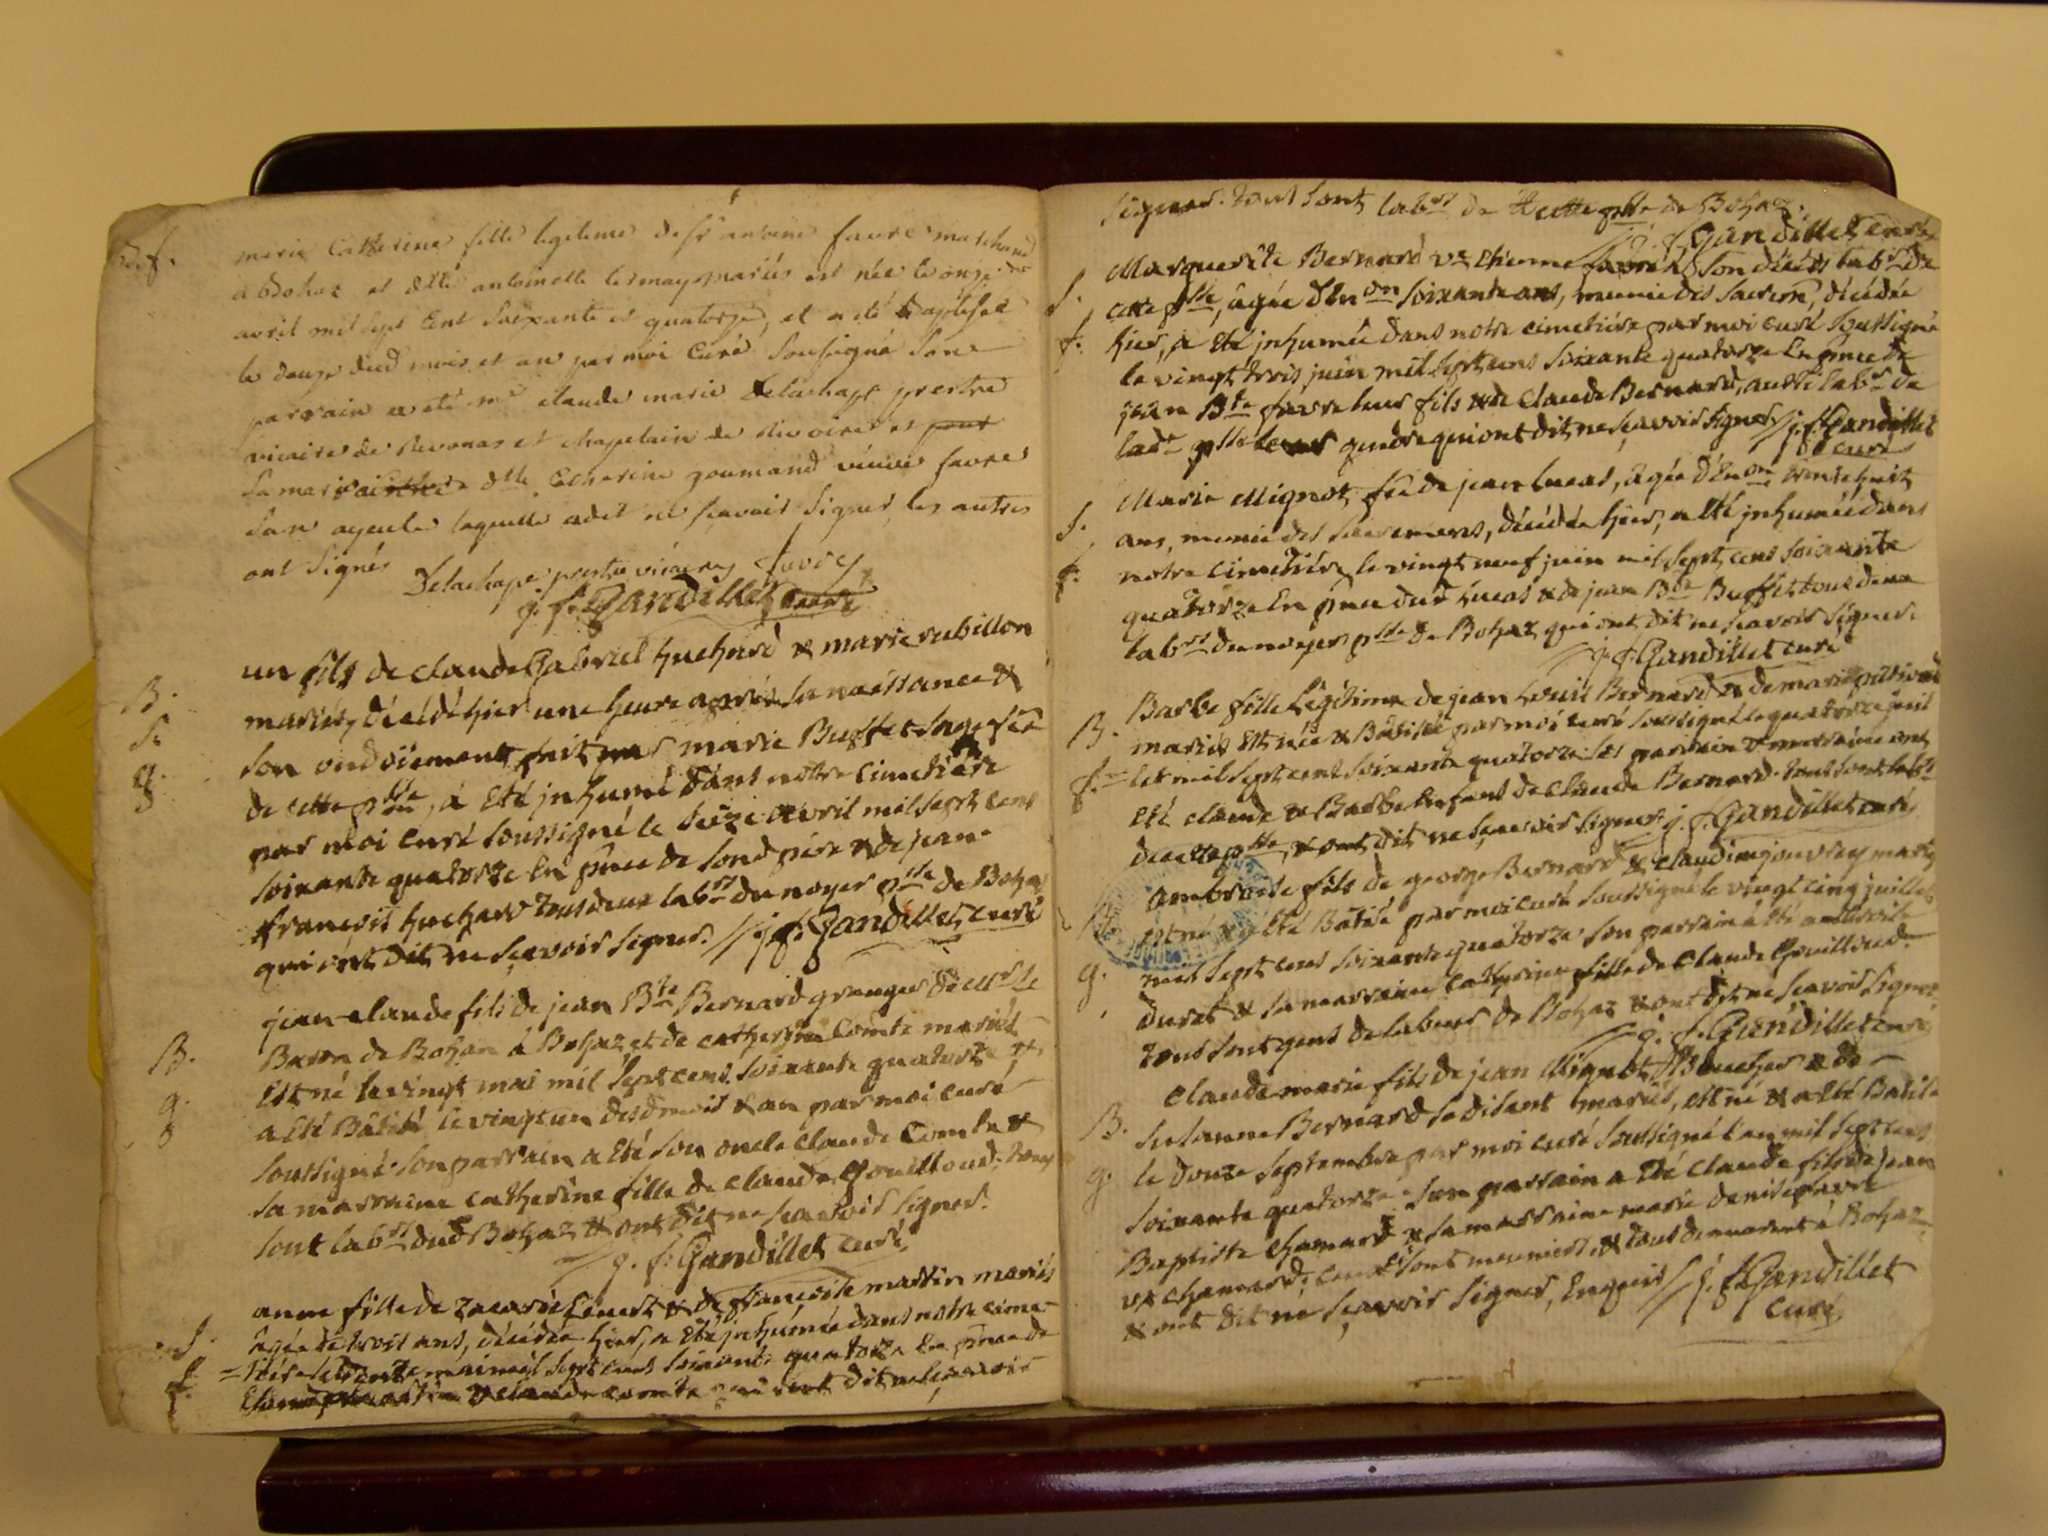 marie Catherine fille legitime de sr antoine favre marchand
a Bohaz et dlle antoinette mariés est née le onze
avril mil sept cent soixante et quatorze, et a été baptisée
le douze dud mois et an par moi Curé soussigné Son
parrain a eté mre claude marie Delachape prestre
vicaire de Revonas et chapelain de Rivoire et pour
Sa marraine dlle Catherine goumand veuve favre
son ayeule laquelle a dit ne sçavoir signer, les autres
ont signés Delachape prestre vicaire favre
j. f. Gandillet curé
B. S. g.
un fils de claude Gabriel huchard & marie rubillon
mariés, décédé hier une heure après sa naissance &
son ondoiement fait par marie Buffet sage fee
de cette psse, a eté inhumé dans notre cimetière
par moi curé soussigné le seize avril mil sept cens
soixante quatorze En pnce de sond père & de jean
françois huchard tous deux labrs du noyer psse de Bohaz
qui ont dit ne sçavoir signer. // j. f. Gandillet curé
B. g.
jean claude fils de jean Bte Bernard granger de Mr le
Baron de Bohan à Bohaz, et de catherine Comte mariés
Est né le vingt mai mil sept cens soixante quatorze &
a eté Bâtisé le vingt un dud mois & an par moi curé
soussigné. son parrain a eté son oncle claude Comte &
sa marraine catherine fille de claude Gouilloud; tous
sont labrs dud Bohaz & ont dit ne sçavoir signer.
// j. f. Gandillet curé
S. f.
anne fille de & de françoise martin mariés
âgée de trois ans, décédée hier, a eté inhumée dans notre cime-
=tière le trente mai mil sept cens soixante quatorze En pnce de
& claude comte qui ont dit ne sçavoir
signer. tous sont labrs de cette psse de Bohaz.
// j. f. Gandillet curé
S. f.
Marguerite Bernard ve Etienne favre à son décès labr de
cette psse, âgée d'En on soixante ans, munie des sacrem, décédée
hier, a eté inhumée dans notre cimetière par moi curé soussigné
le vingt trois juin mil sept cens soixante quatorze En pnce de
jean Bte favre leur fils & de Claude Bernard, aussi labr de
lade psse leur gendre qui ont dit ne sçavoir signer // j. f. Gandillet
curé
S. f.
Marie Mignot fe de jean lucas, âgée d'En on trente huit
ans, munie des sacremens, décédée hier, a eté inhumée dans
notre cimetière le vingt neuf juin mil sept cens soixante
quatorze En pnce dud Lucas & de jean Bte Buffet tous deux
labrs du noyer psse de Bohaz qui ont dit ne sçavoir signer.
// j. f. Gandillet curé
B. f.
Barbe fille Légitime de jean Louis Bernard & de marie
mariés Est née & Bâtisée par moi curé soussigné le quatorze juil
=let mil sept cent soixante quatorze. ses parrain & marraine ont
eté claude & Barbe Enfans de claude Bernard. tous sont labrs
de cette psse, & ont dit ne sçavoir signer. j. f. Gandillet curé
B. g.
ambroise fils de george Bernard & claudine jouvrey mariés
est né & a eté Bâtisé par moi curé soussigné le vingt cinq juillet
mil sept cens soixante quatorze. son parrain a eté ambroise
duret & sa marraine catherine fille de claude Gouilloud
tous sont gens de labeur de Bohaz & ont dit ne sçavoir signer
// j. f. Gandillet curé
B. g.
claude marie fils de jean Mignot Boucher & de
susanne Bernard se disant mariés, est né & a eté Batisé
le douze septembre par moi curé soussigné l'an mil sept cens
soixante quatorze. son parrain a eté claude fils de jean
Baptiste chanard & sa marraine marie denise favre
ve chanard; ceux ci sont meuniers, & tous demeurent à Bohaz
& ont dit ne sçavoir signer, Enquis // j. f. Gandillet
curé